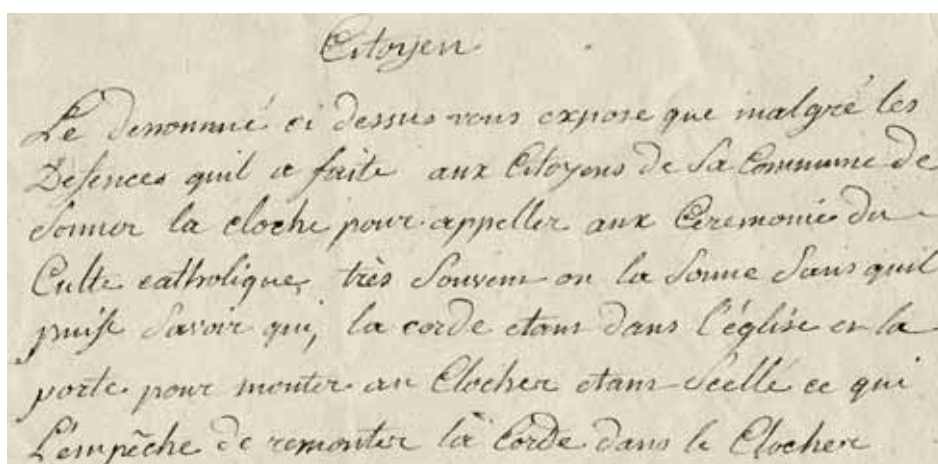 Citoyen
Le denommé ci dessus vous expose que malgré les
Defences quil a faite aux Citoyens de Sa Commune de
Sonner la cloche pour appeller aux Ceremonie du
Culte catholique, très Souvent on la Sonne Sans quil
puisse Savoir qui, la corde etant dans l'église et la
porte pour monter au Clocher etant Scellé ce qui
L'empêche de remonter la Corde dans le Clocher